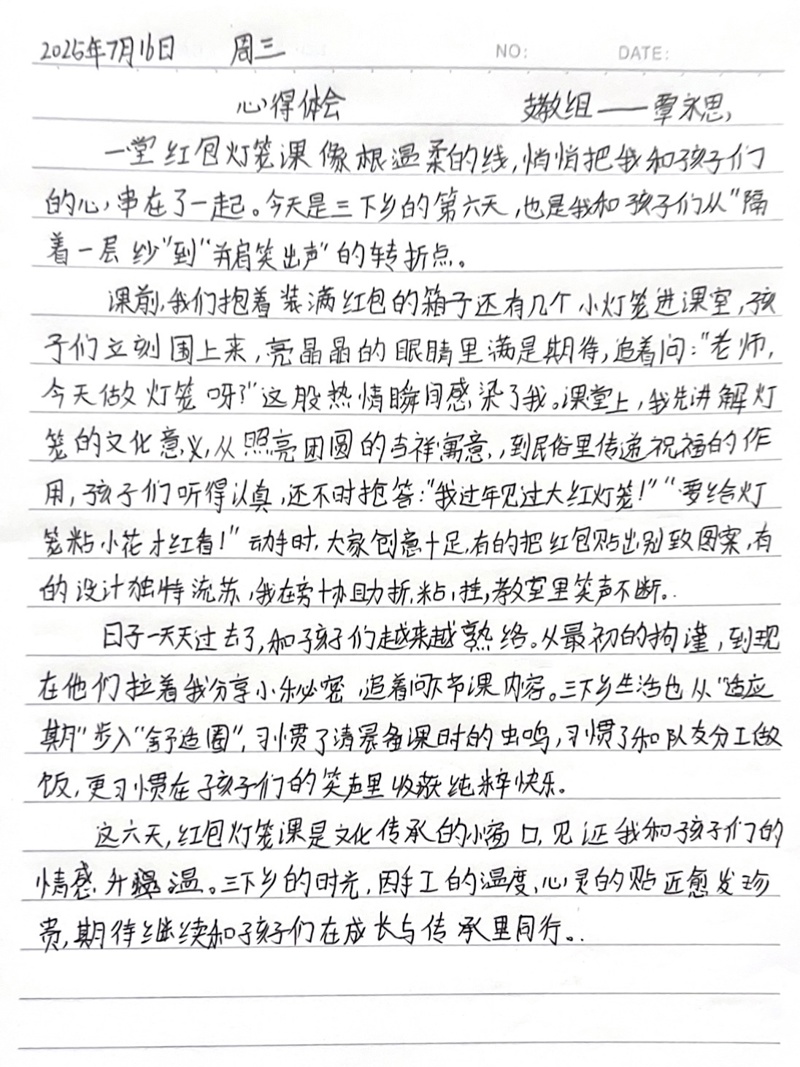 2025年7月16日 周三 NO: DATE:
心得体会 支教组——覃永思
一堂红包灯笼课像根温柔的线,悄悄把我和孩子们
的心串在了一起。今天是三下乡的第六天,也是我和孩子们从"隔
着一层纱"到"并肩笑出声"的转折点。
课前,我们抱着装满红包的箱子还有几个小灯笼进课室,孩
子们立刻围上来,亮晶晶的眼睛里满是期待,追着问:"老师,
今天做灯笼呀?"这股热情瞬间感染了我。课堂上,我先讲解灯
笼的文化意义,从照亮团圆的吉祥寓意,到民俗里传递祝福的作
用,孩子们听得认真,还不时抢答:"我过年见过大红灯笼!""要给灯
笼粘小花才红看!"动手时,大家创意十足,有的把红包贴出别致图案,有
的设计独特流苏,我在旁协助折,粘,挂,教室里笑声不断。
日子一天天过去了,和孩子们越来越熟络。从最初的拘谨,到现
在他们拉着我分享小秘密,追着问下节课内容。三下乡生活也从"适应
期"步入"舒适圈",习惯了清晨备课时的虫鸣,习惯了和队友分工做
饭,更习惯在孩子们的笑声里收获纯粹快乐。
这六天,红包灯笼课是文化传承的小窗口,见证我和孩子们的
情感升温。三下乡的时光,因手工的温度,心灵的贴近愈发珍
贵,期待继续和孩子们在成长与传承里同行。